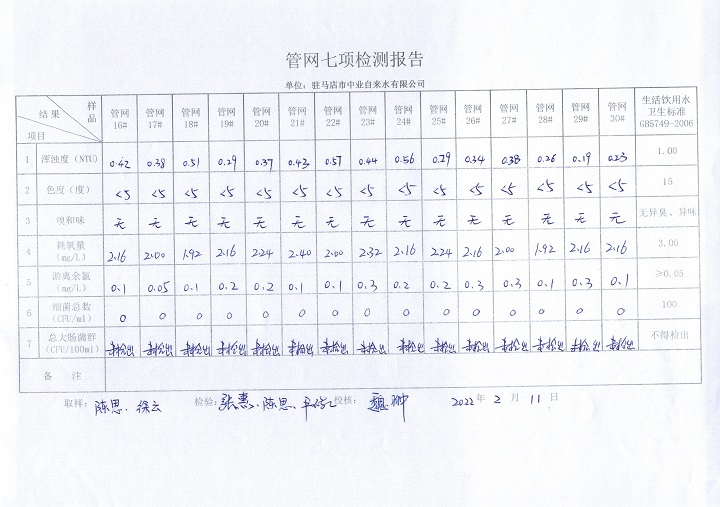 管网七项检测报告
单位：驻马店市中业自来水有限公司
结果 样品 项目 管网16# 管网17# 管网18# 管网19# 管网20# 管网21# 管网22# 管网23# 管网24# 管网25# 管网26# 管网27# 管网28# 管网29# 管网30# 生活饮用水卫生标准GB5749-2006
1 浑浊度（NTU） 0.42 0.38 0.51 0.29 0.37 0.43 0.57 0.44 0.56 0.29 0.34 0.38 0.26 0.19 0.23 1.00
2 色度（度） <5 <5 <5 <5 <5 <5 <5 <5 <5 <5 <5 <5 <5 <5 <5 15
3 嗅和味 无 无 无 无 无 无 无 无 无 无 无 无 无 无 无 无异臭、异味
4 耗氧量（mg/L） 2.16 2.00 1.92 2.16 2.24 2.40 2.00 2.32 2.16 2.24 2.16 2.00 1.92 2.16 2.16 3.00
5 游离余氯（mg/L） 0.1 0.05 0.1 0.2 0.2 0.1 0.1 0.3 0.2 0.2 0.3 0.3 0.1 0.3 0.1 ≥0.05
6 细菌总数（CFU/ml） 0 0 0 0 0 0 0 0 0 0 0 0 0 0 0 100
7 总大肠菌群（CFU/100ml） 未检出 未检出 未检出 未检出 未检出 未检出 未检出 未检出 未检出 未检出 未检出 未检出 未检出 未检出 未检出 不得检出
备 注
取样：陈思、徐云 检验：张惠、陈思、 校核： 2022年2月11日